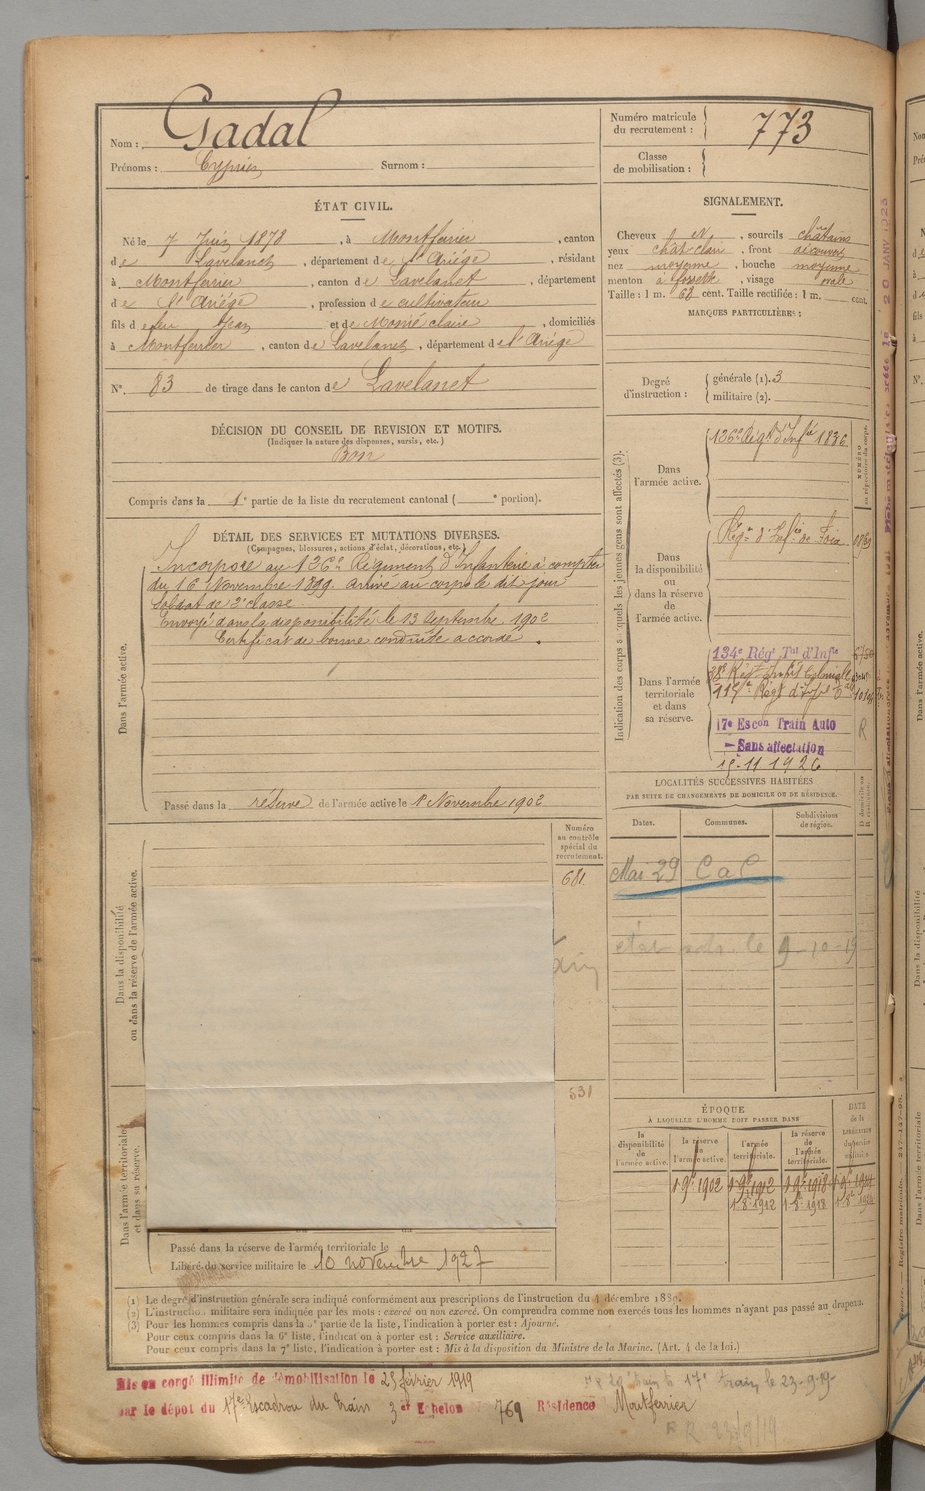 Nom : Gadal
Prénoms : Cyprien Surnom :
Numéro matricule
du recrutement : 773
Classe
de mobilisation :
ÉTAT CIVIL.
Né le 7 Juin 1878, à Montferrier, canton
de Lavelanet, département de l'Ariége, résidant
à Montferrier, canton de Lavelanet, département
de l'Ariége, profession de cultivateur
fils de feu Jean et de Monié claire, domiciliés
à Montferrier, canton de Lavelanet, département de l'Ariége
N°. 83 de tirage dans le canton de Lavelanet
DÉCISION DU CONSEIL DE REVISION ET MOTIFS.
(Indiquer la nature des dispenses, sursis, etc.)
Bon
Compris dans la 1e partie de la liste du recrutement cantonal ( e portion).
SIGNALEMENT.
Cheveux et, sourcils châtains
yeux chat-clair, front découvert
nez moyenne, bouche moyenne
menton à fossette, visage ovale
Taille : 1 m. 68 cent. Taille rectifiée : 1 m. cent.
MARQUES PARTICULIÈRES :
Degré
d'instruction :
générale (1). 3
militaire (2).
DÉTAIL DES SERVICES ET MUTATIONS DIVERSES.
(Campagnes, blessures, actions d'éclat, décorations, etc.)
Dans l'armée active.
Incorporé au 126e Régiment d'Infanterie à compter
du 16 Novembre 1899. arrivé au corps le dit jour
Soldat de 2e classe.
Envoyé dans la disponibilité le 13 Septembre 1902
Certificat de bonne conduite accordé.
Passé dans la réserve de l'armée active le 1er Novembre 1902
Indication des corps auxquels les jeunes gens sont affectés (3).
NUMÉRO
au répertoire du corps.
Dans
l'armée active.
126e Régt d'Infie 1836
Dans
la disponibilité
ou
dans la réserve
de
l'armée active.
Régt d'Infie de Foix
Dans l'armée
territoriale
et dans
sa réserve.
134e Régt Tal d'Infie
17e Escon Train Auto
Sans affectation
15-11 1926
R
LOCALITÉS SUCCESSIVES HABITÉES
PAR SUITE DE CHANGEMENTS DE DOMICILE OU DE RÉSIDENCE.
D. domicile ou
R. résidence.
Dates. Communes. Subdivisions
de région.
Mai 29 C a C
le 9-10-19
Numéro
au contrôle
spécial du
recrutement.
681.
531
Dans la disponibilité
ou dans la réserve de l'armée active.
Dans l'armée territoriale
et dans sa réserve.
ÉPOQUE
À LAQUELLE L'HOMME DOIT PASSER DANS
la
disponibilité
de
l'armée active.
la réserve
de
l'armée active.
l'armée
territoriale.
la réserve
de
l'armée
territoriale.
DATE
de la
LIBÉRATION
du service
militaire.
1-9e 1902 1-9e 1912 1-9e 1918 1-9e 1924
1-8e 1912 1-8e 1918 1-8e 1924
Passé dans la réserve de l'armée territoriale le
Libéré du service militaire le 10 novembre 1927
(1) Le degré d'instruction générale sera indiqué conformément aux prescriptions de l'instruction du 4 décembre 1889.
(2) L'instruction militaire sera indiquée par les mots : exercé ou non exercé. On comprendra comme non exercés tous les hommes n'ayant pas passé au drapeau.
(3) Pour les hommes compris dans la 5e partie de la liste, l'indication à porter est : Ajourné.
Pour ceux compris dans la 6e liste, l'indication à porter est : Service auxiliaire.
Pour ceux compris dans la 7e liste, l'indication à porter est : Mis à la disposition du Ministre de la Marine. (Art. 4 de la loi.)
Mis en congé illimité de démobilisation le 25 février 1919
par le dépôt du 17e Escadron du Train 3e Echelon 769 Résidence Montferrier
17e train le 23-9-19
R 23/9/19